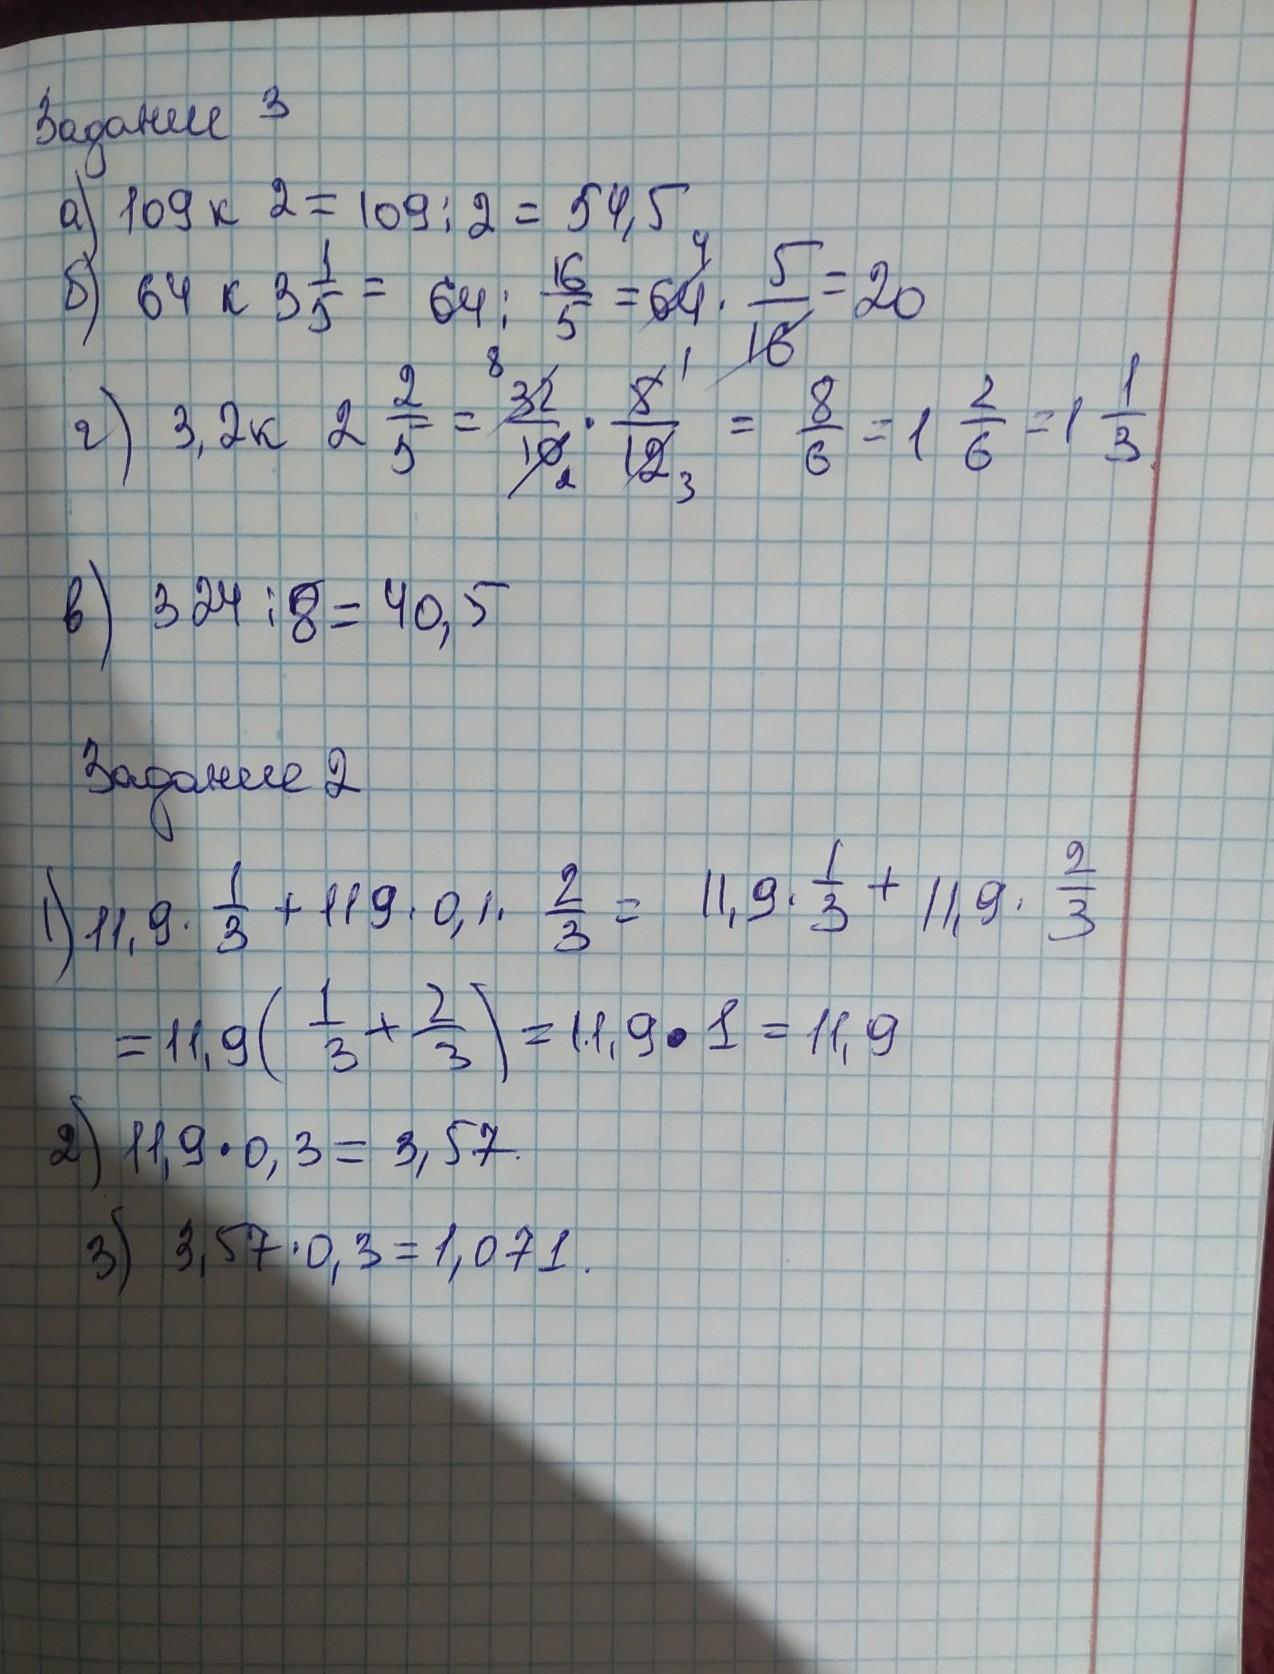 Задание 3
а) 109 к 2 = 109 : 2 = 54,5
б) 64 к 3 1/5 = 64 : 16/5 = 64 4 · 5/16 = 20
г) 3,2 к 2 2/5 = 8 32/10 2 · 5 1/12 3 = 8/6 = 1 2/6 = 1 1/3
в) 324 : 8 = 40,5
Задание 2
1) 11,9 · 1/3 + 119 · 0,1 · 2/3 = 11,9 · 1/3 + 11,9 · 2/3
= 11,9 ( 1/3 + 2/3 ) = 11,9 · 1 = 11,9
2) 11,9 · 0,3 = 3,57.
3) 3,57 · 0,3 = 1,071.